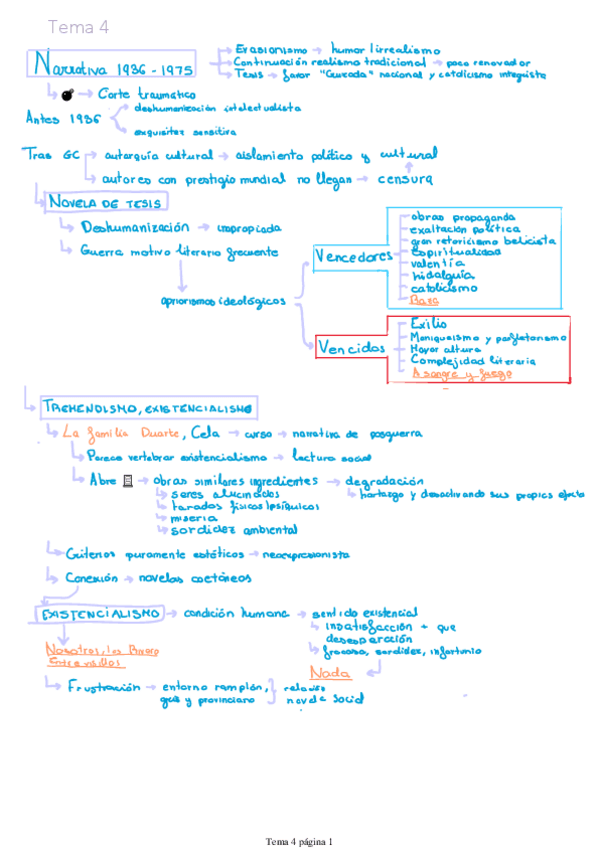 Tema 4
Narrativa 1936 - 1975
Evasionismo → humor | irrealismo
Continuación realismo tradicional → poco renovador
Tesis → favor "Cruzada" nacional y catolicismo integrista
→ Corte traumático
Antes 1936
deshumanización intelectualista
exquisitez sensitiva
Tras GC
autarquía cultural → aislamiento político y cultural
autores con prestigio mundial no llegan → censura
NOVELA DE TESIS
Deshumanización → impropiada
Guerra motivo literario frecuente
apriorismos ideológicos
Vencedores
obras propaganda
exaltación política
gran retoricismo belicista
espiritualidad
valentía
hidalguía
catolicismo
Raza
Vencidos
Exilio
Maniqueísmo y panfletarismo
Mayor altura
Complejidad literaria
A sangre y fuego
TREMENDISMO, EXISTENCIALISMO
La familia Duarte, Cela → curso → narrativa de posguerra
Parece vertebrar existencialismo → lectura social
Abre → obras similares ingredientes → degradación
seres alucinados
tarados físicos|psíquicos
miseria
sordidez ambiental
hartazgo y desactivando sus propios efecto
Criterios puramente estéticos → neoexpresionista
Conexión → novelas coetáneas
EXISTENCIALISMO → condición humana → sentido existencial
insatisfacción + que
desesperación
fracaso, sordidez, infortunio
Nada
Nosotros, los Rivero
Entre visillos
Frustración → entorno ramplón,
gris y provinciano
novela social
Tema 4 página 1